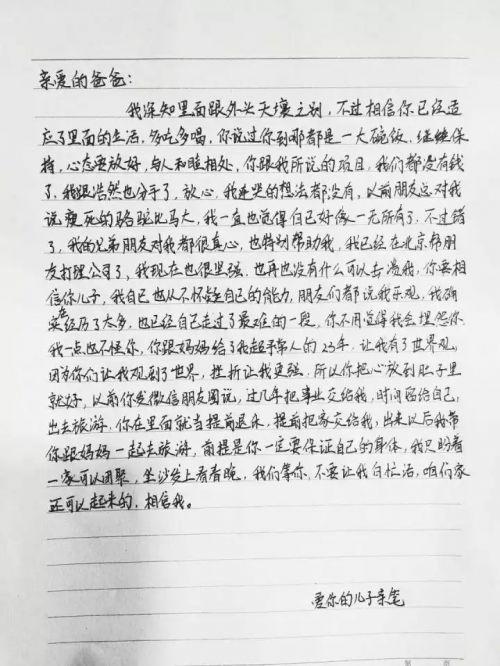 亲爱的爸爸：
我深知里面跟外头天壤之别，不过相信你已经适
应了里面的生活，多吃多喝，你说过你到哪都是一大碗饭，继续保
持，心态要放好，与人和睦相处，你跟我所说的项目，我们都没有钱
了，我跟浩然也分手了，放心，我连哭的想法都没有，以前朋友总对我
说瘦死的骆驼比马大，我一直也觉得自己好像一无所有了，不过错
了，我的兄弟朋友对我都很真心，也特别帮助我，我已经在北京帮朋
友打理公司了，我现在也很坚强，也再也没有什么可以击溃我，你要相
信你儿子，我自己也从不怀疑自己的能力，朋友们都说我乐观，我确
实在经历了太多，也已经自己走过了最难的一段，你不用觉得我会埋怨你，
我一点也不怪你，你跟妈妈给了我超乎常人的23年，让我有了世界观，
因为你们让我观到了世界，挫折让我更强，所以你把心放到肚子里
就好，以前你发微信朋友圈说，过几年把事业交给我，时间留给自己，
出去旅游，你在里面就当提前退休，提前把家交给我，出来以后我带
你跟妈妈一起去旅游，前提是你一定要保证自己的身体，我只盼着
一家可以团聚，坐沙发上看春晚，我们等你，不要让我白忙活，咱们家
还可以起来的，相信我。
爱你的儿子亲笔